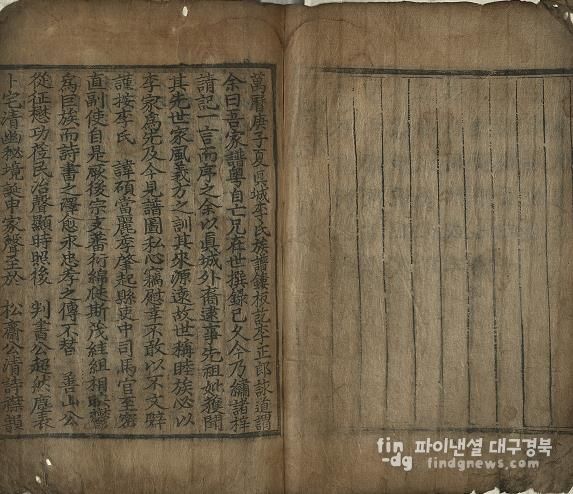 萬曆庚子夏眞城李氏族譜鏤板訖李正郎詠道謂
余曰吾家譜粤自亡兄在世撰録已久今乃繡諸梓
請記一言而序之余以眞城外裔逮事先祖妣獲聞
其先世家風義方之訓其來源遠故世稱睦族必以
李家爲先及今見譜圖私心竊慰幸不敢以不文辭
謹按李氏 諱碩當麗季肇起縣吏中司馬官至密
直副使自是厥後宗支蕃衍綿綿斯茂組相
爲巨族而詩書之澤愈永忠孝之傳不替 善山公
從征懋功莅民治聲顯時照後 判書公超然塵表
卜宅清幽秘境誕申家聲至於 松齋公清詩襟韻
fin-dg 파이낸셜 대구경북
findgnews.com